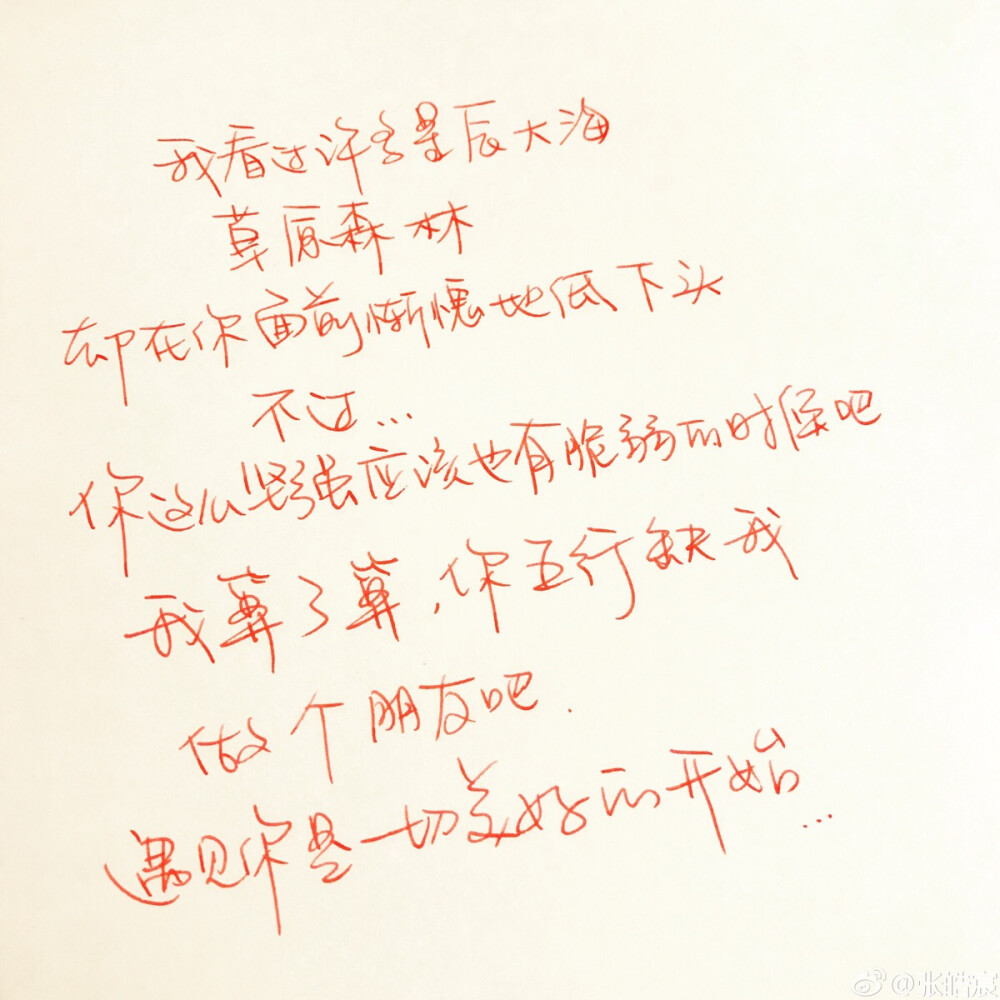 我看过许多星辰大海
草原森林
却在你面前惭愧地低下头
不过...
你这么坚强应该也有脆弱的时候吧
我算了算，你五行缺我
做个朋友吧.
遇见你是一切美好的开始...
@张皓宸